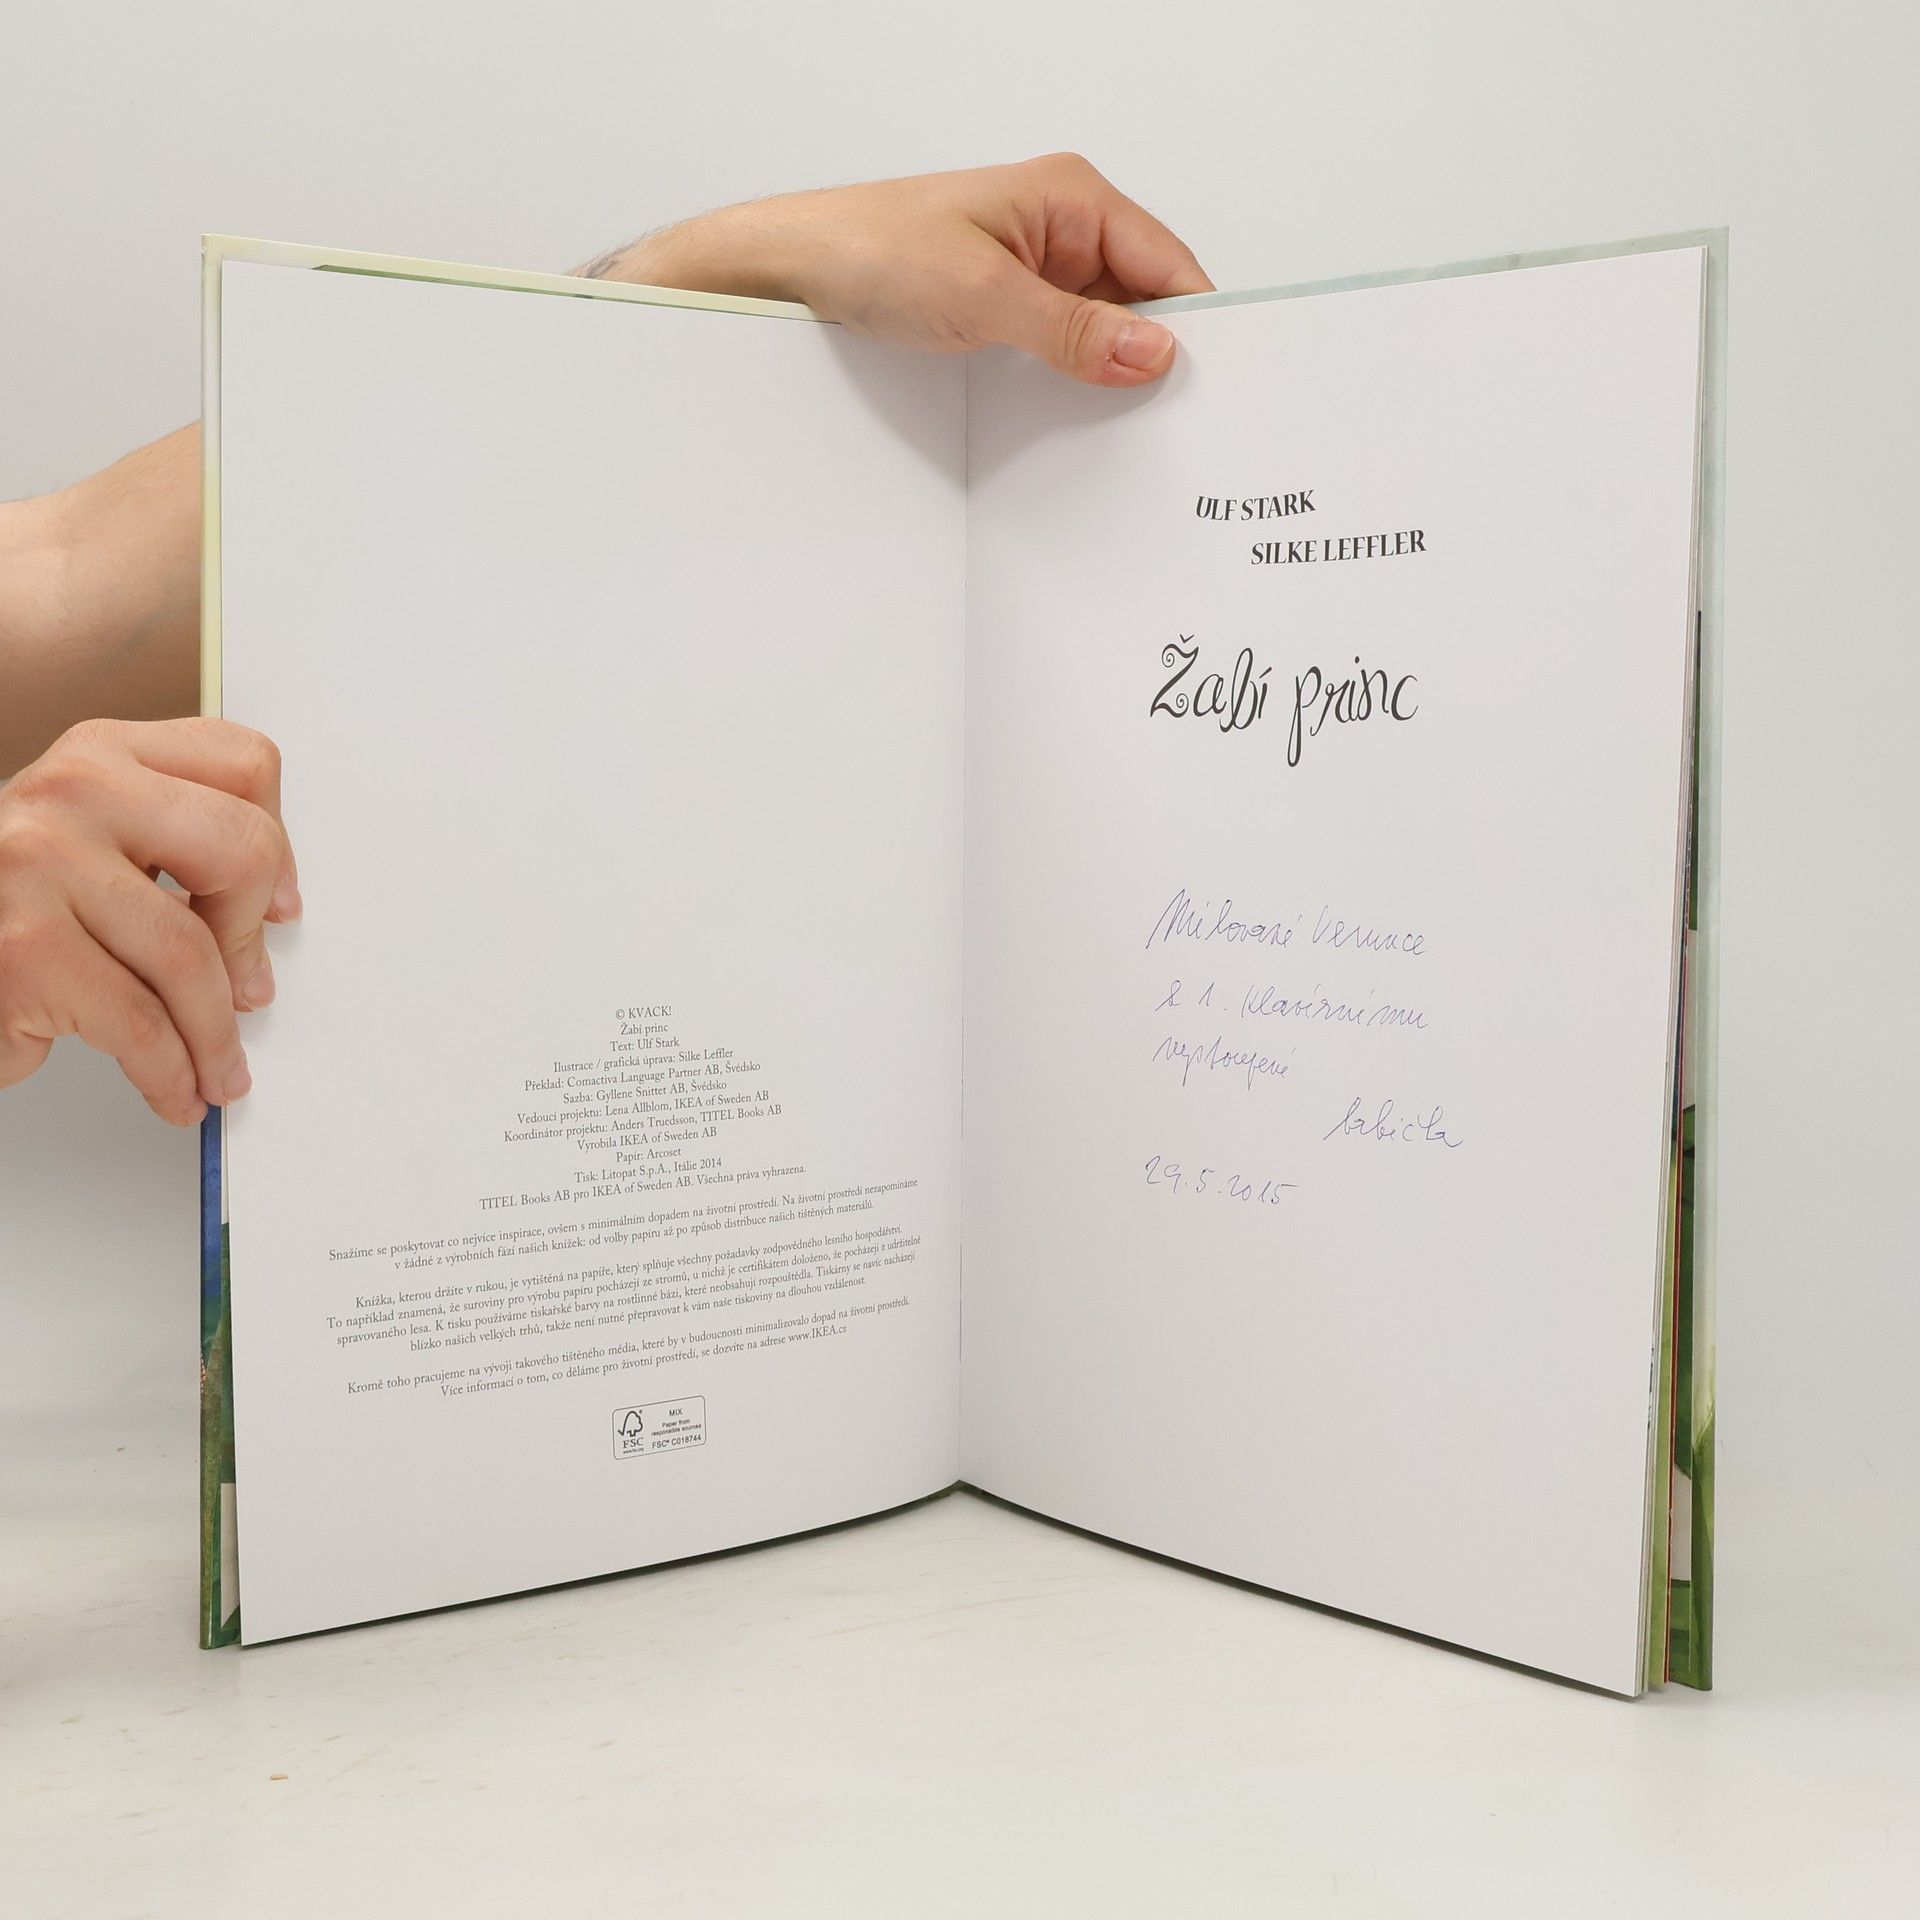 © KVACK!
Žabí princ
Text: Ulf Stark
Ilustrace / grafická úprava: Silke Leffler
Překlad: Comactiva Language Partner AB, Švédsko
Sazba: Gyllene Snittet AB, Švédsko
Vedoucí projektu: Lena Allblom, IKEA of Sweden AB
Koordinátor projektu: Anders Truedsson, TITEL Books AB
Vyrobila IKEA of Sweden AB
Papír: Arcoset
Tisk: Litopat S.p.A., Itálie 2014
TITEL Books AB pro IKEA of Sweden AB. Všechna práva vyhrazena.
Snažíme se poskytovat co nejvíce inspirace, ovšem s minimálním dopadem na životní prostředí. Na životní prostředí nezapomínáme
v žádné z výrobních fází našich knížek: od volby papíru až po způsob distribuce našich tištěných materiálů.
Knížka, kterou držíte v rukou, je vytištěná na papíře, který splňuje všechny požadavky zodpovědného lesního hospodářství.
To například znamená, že suroviny pro výrobu papíru pocházejí ze stromů, u nichž je certifikátem doloženo, že pocházejí z udržitelně
spravovaného lesa. K tisku používáme tiskařské barvy na rostlinné bázi, které neobsahují rozpouštědla. Tiskárny se navíc nacházejí
blízko našich velkých trhů, takže není nutné přepravovat k vám naše tiskoviny na dlouhou vzdálenost.
Kromě toho pracujeme na vývoji takového tištěného média, které by v budoucnosti minimalizovalo dopad na životní prostředí.
Více informací o tom, co děláme pro životní prostředí, se dozvíte na adrese www.IKEA.cz
FSC
www.fsc.org
MIX
Paper from
responsible sources
FSC® C018744
ULF STARK
SILKE LEFFLER
Žabí princ
Milované Verunce
k 1. klavírnímu
vystoupení
babička
29.5.2015